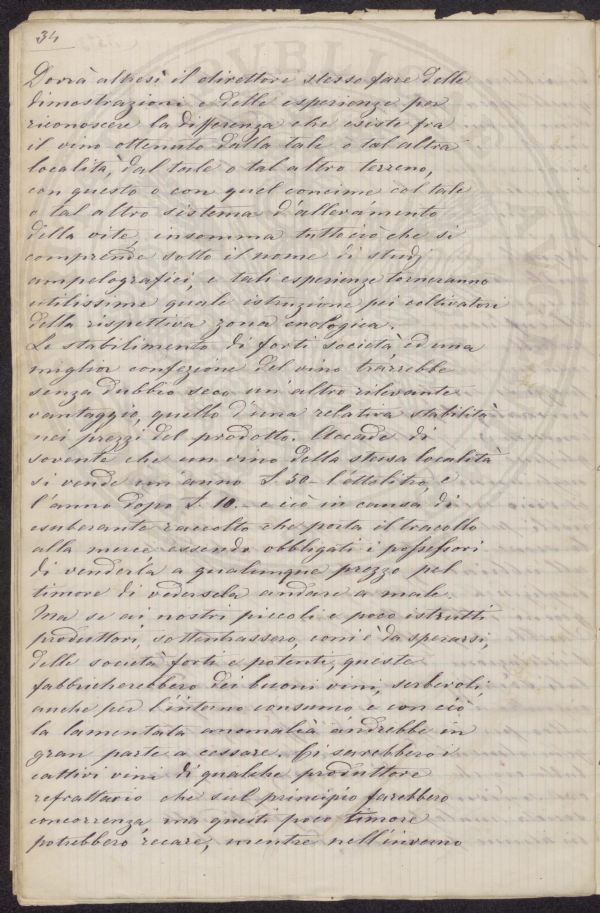 34
Dovrà altresì il direttore stesso fare delle
dimostrazioni e delle esperienze per
riconoscere la differenza che esiste fra
il vino ottenuto dalla tale o tal altra
località, dal tale o tal altro terreno,
con questo o con quel concime col tale
o tal altro sistema d'allevamento
della vite, insomma tutto ciò che si
comprende sotto il nome di studj
ampelografici, e tali esperienze torneranno
utilissime quale istruzione pei coltivatori
della rispettiva zona enologica.
Lo stabilimento di forti società, ed una
miglior confezione del vino trarrebbe
senza dubbio seco un'altro rilevante
vantaggio, quello d'una relativa stabilità
nei prezzi del prodotto. Accade di
sovente che un vino della stessa località
si vende un'anno £. 30.- l'ettolitro, e
l'anno dopo £. 10.- e ciò in causa di
esuberante raccolto che porta il tracollo
alla merce essendo obbligati i possessori
di venderla a qualunque prezzo pel
timore di vedersela andare a male.
Ma se ai nostri piccoli e poco istrutti
produttori, sottentrassero, com'è da sperarsi,
delle società forti e potenti, queste
fabbricherebbero dei buoni vini, serbevoli
anche per l'interno consumo e con ciò
la lamentata anomalia andrebbe in
gran parte a cessare. Ci sarebbero i
cattivi vini di qualche produttore
refrattario che sul principio farebbero
concorrenza, ma questi poco timore
potrebbero recare, mentre nell'inverno